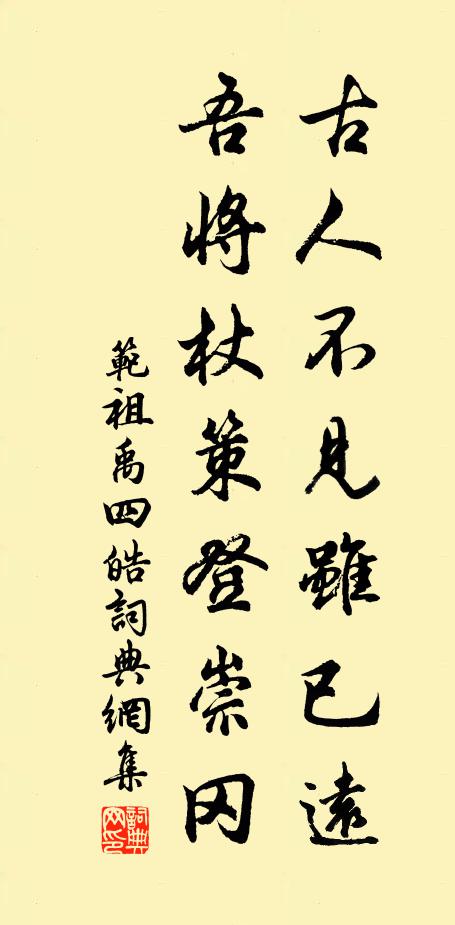 古人不見雖已遠
吾將杖策登崇冈
範祖禹四皓詞典網集
詞典网印